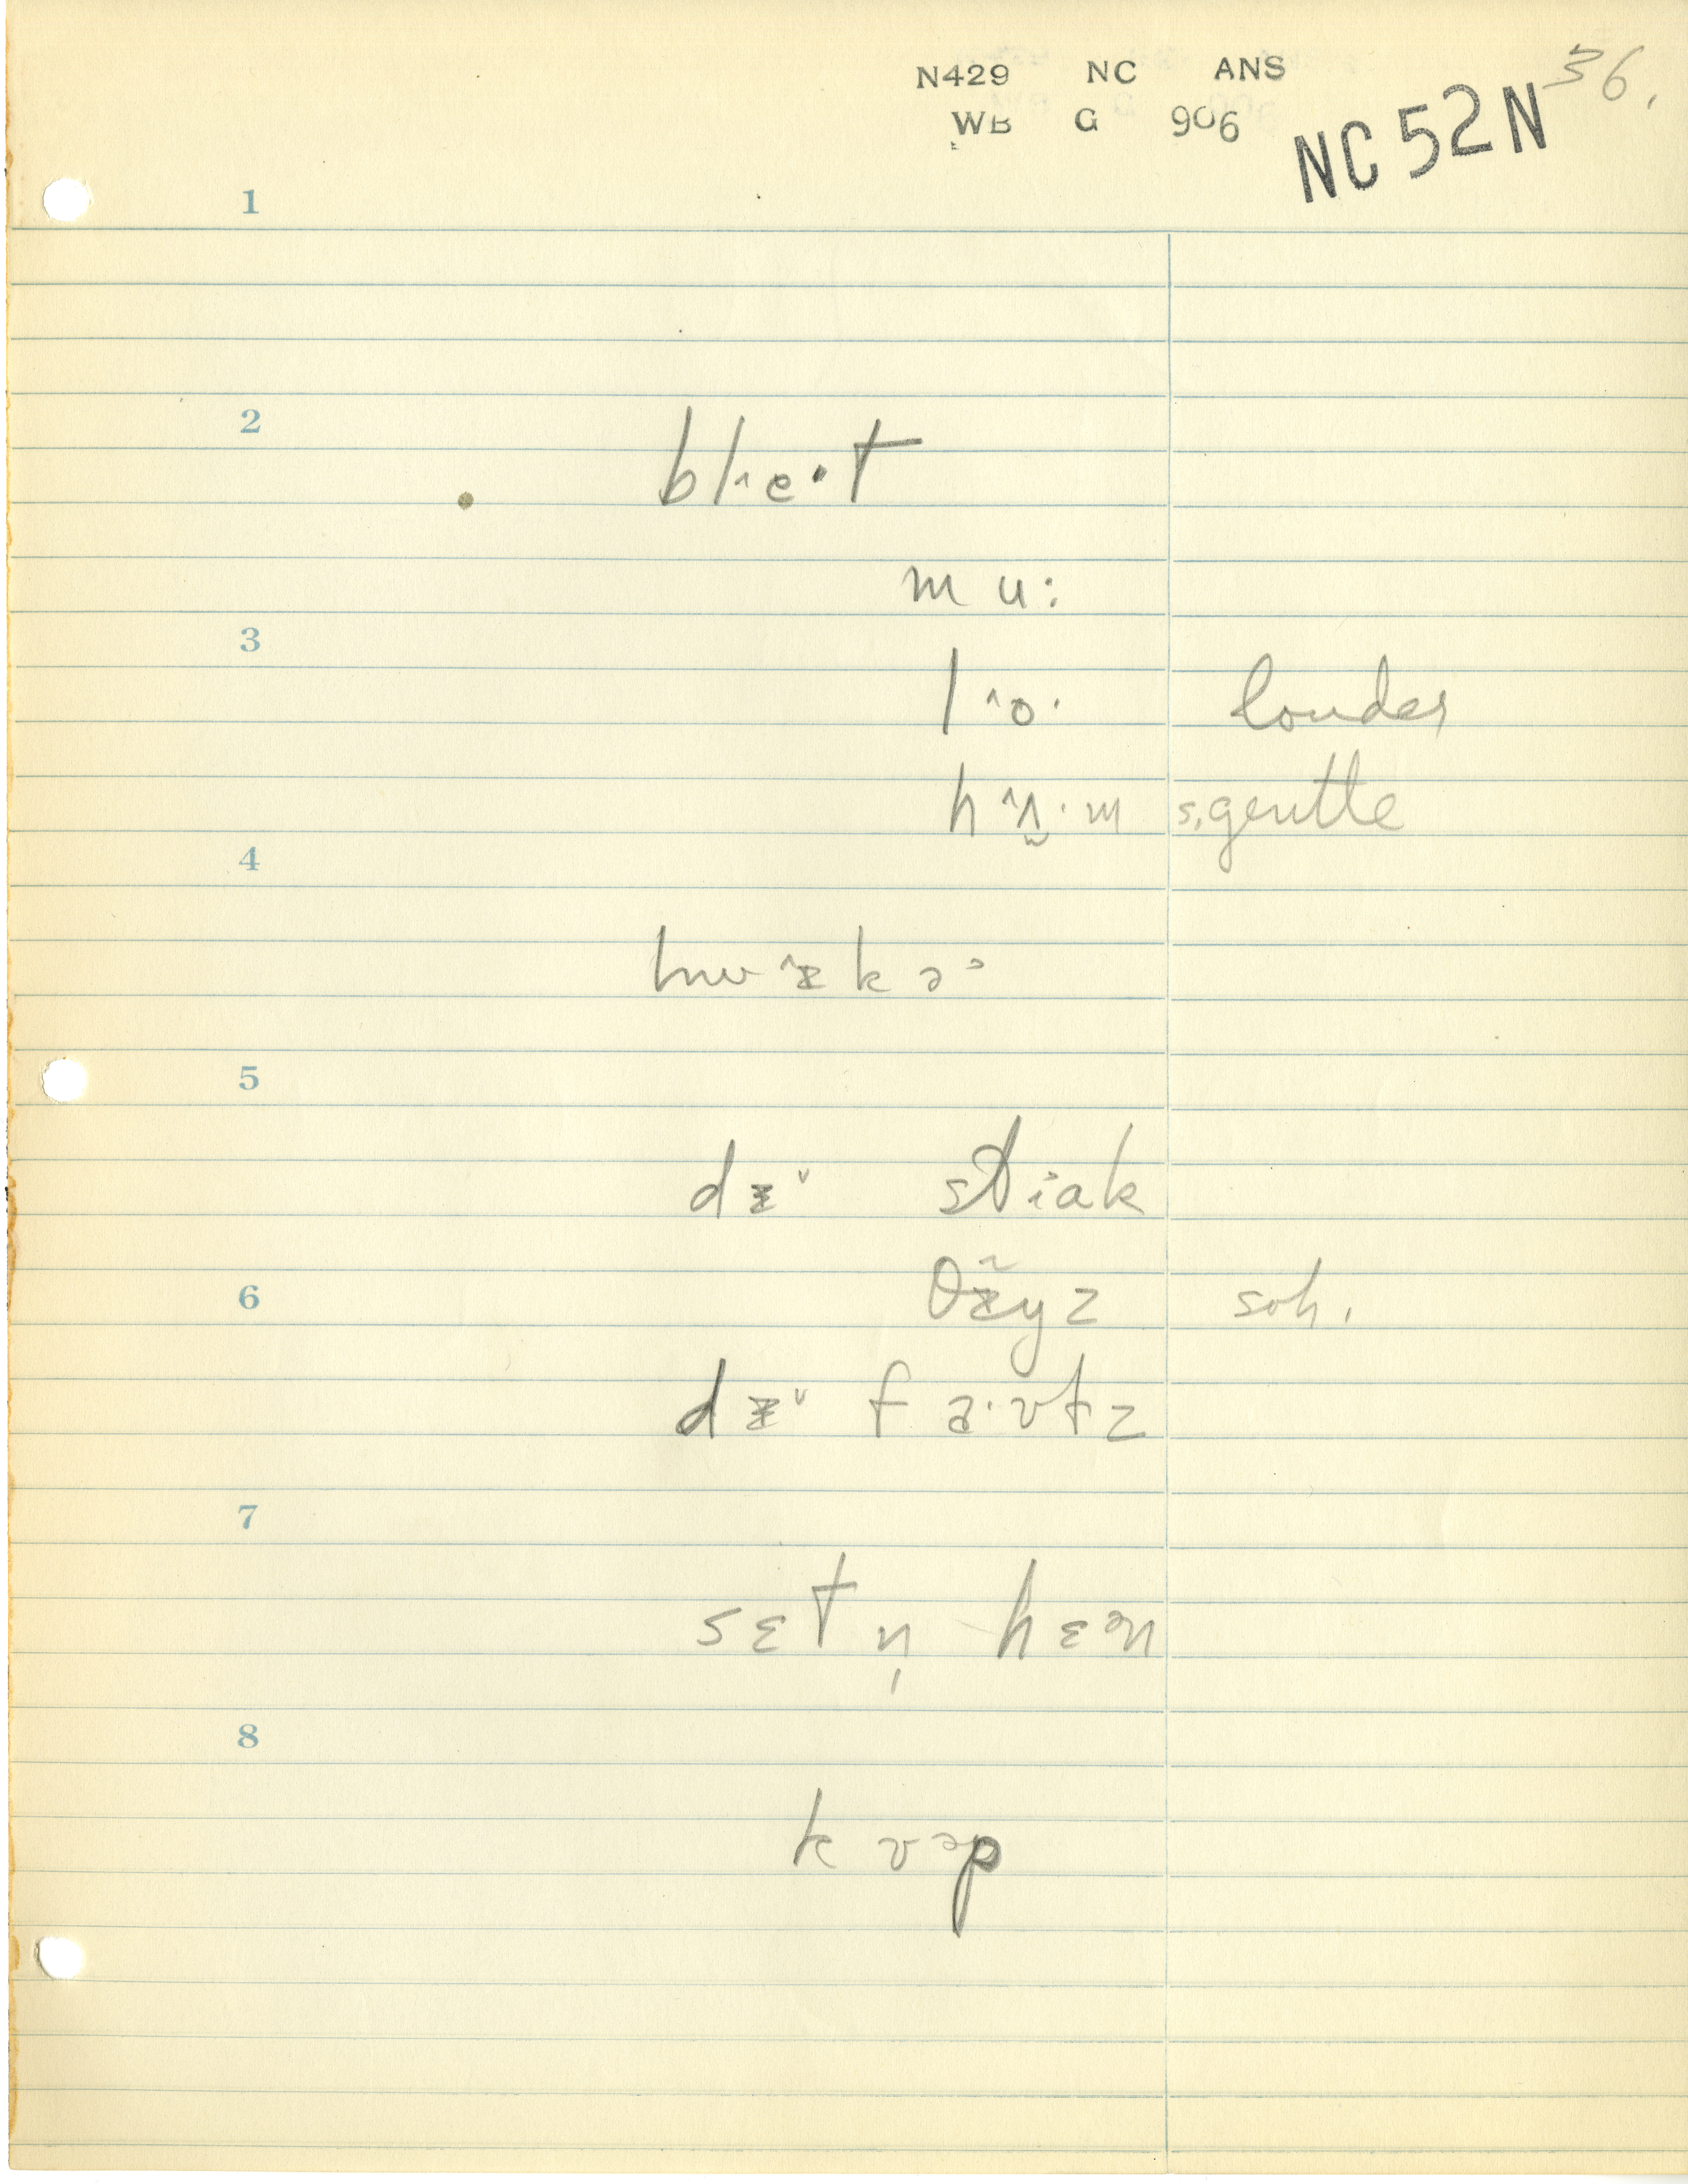 N429 NC ANS
36.
WB G 906
NC 52N
1
2
bl˄e·t
mu:
3
l˄o· louder
h˄ʌ̬·m s. gentle
4
hw˄ɪkə˃
5
dɪ˅ stiak
6
θɪ̃yz soh.
dɪ˅ fa·vtz
7
sɛtn̩ hɛən
8
kvəp